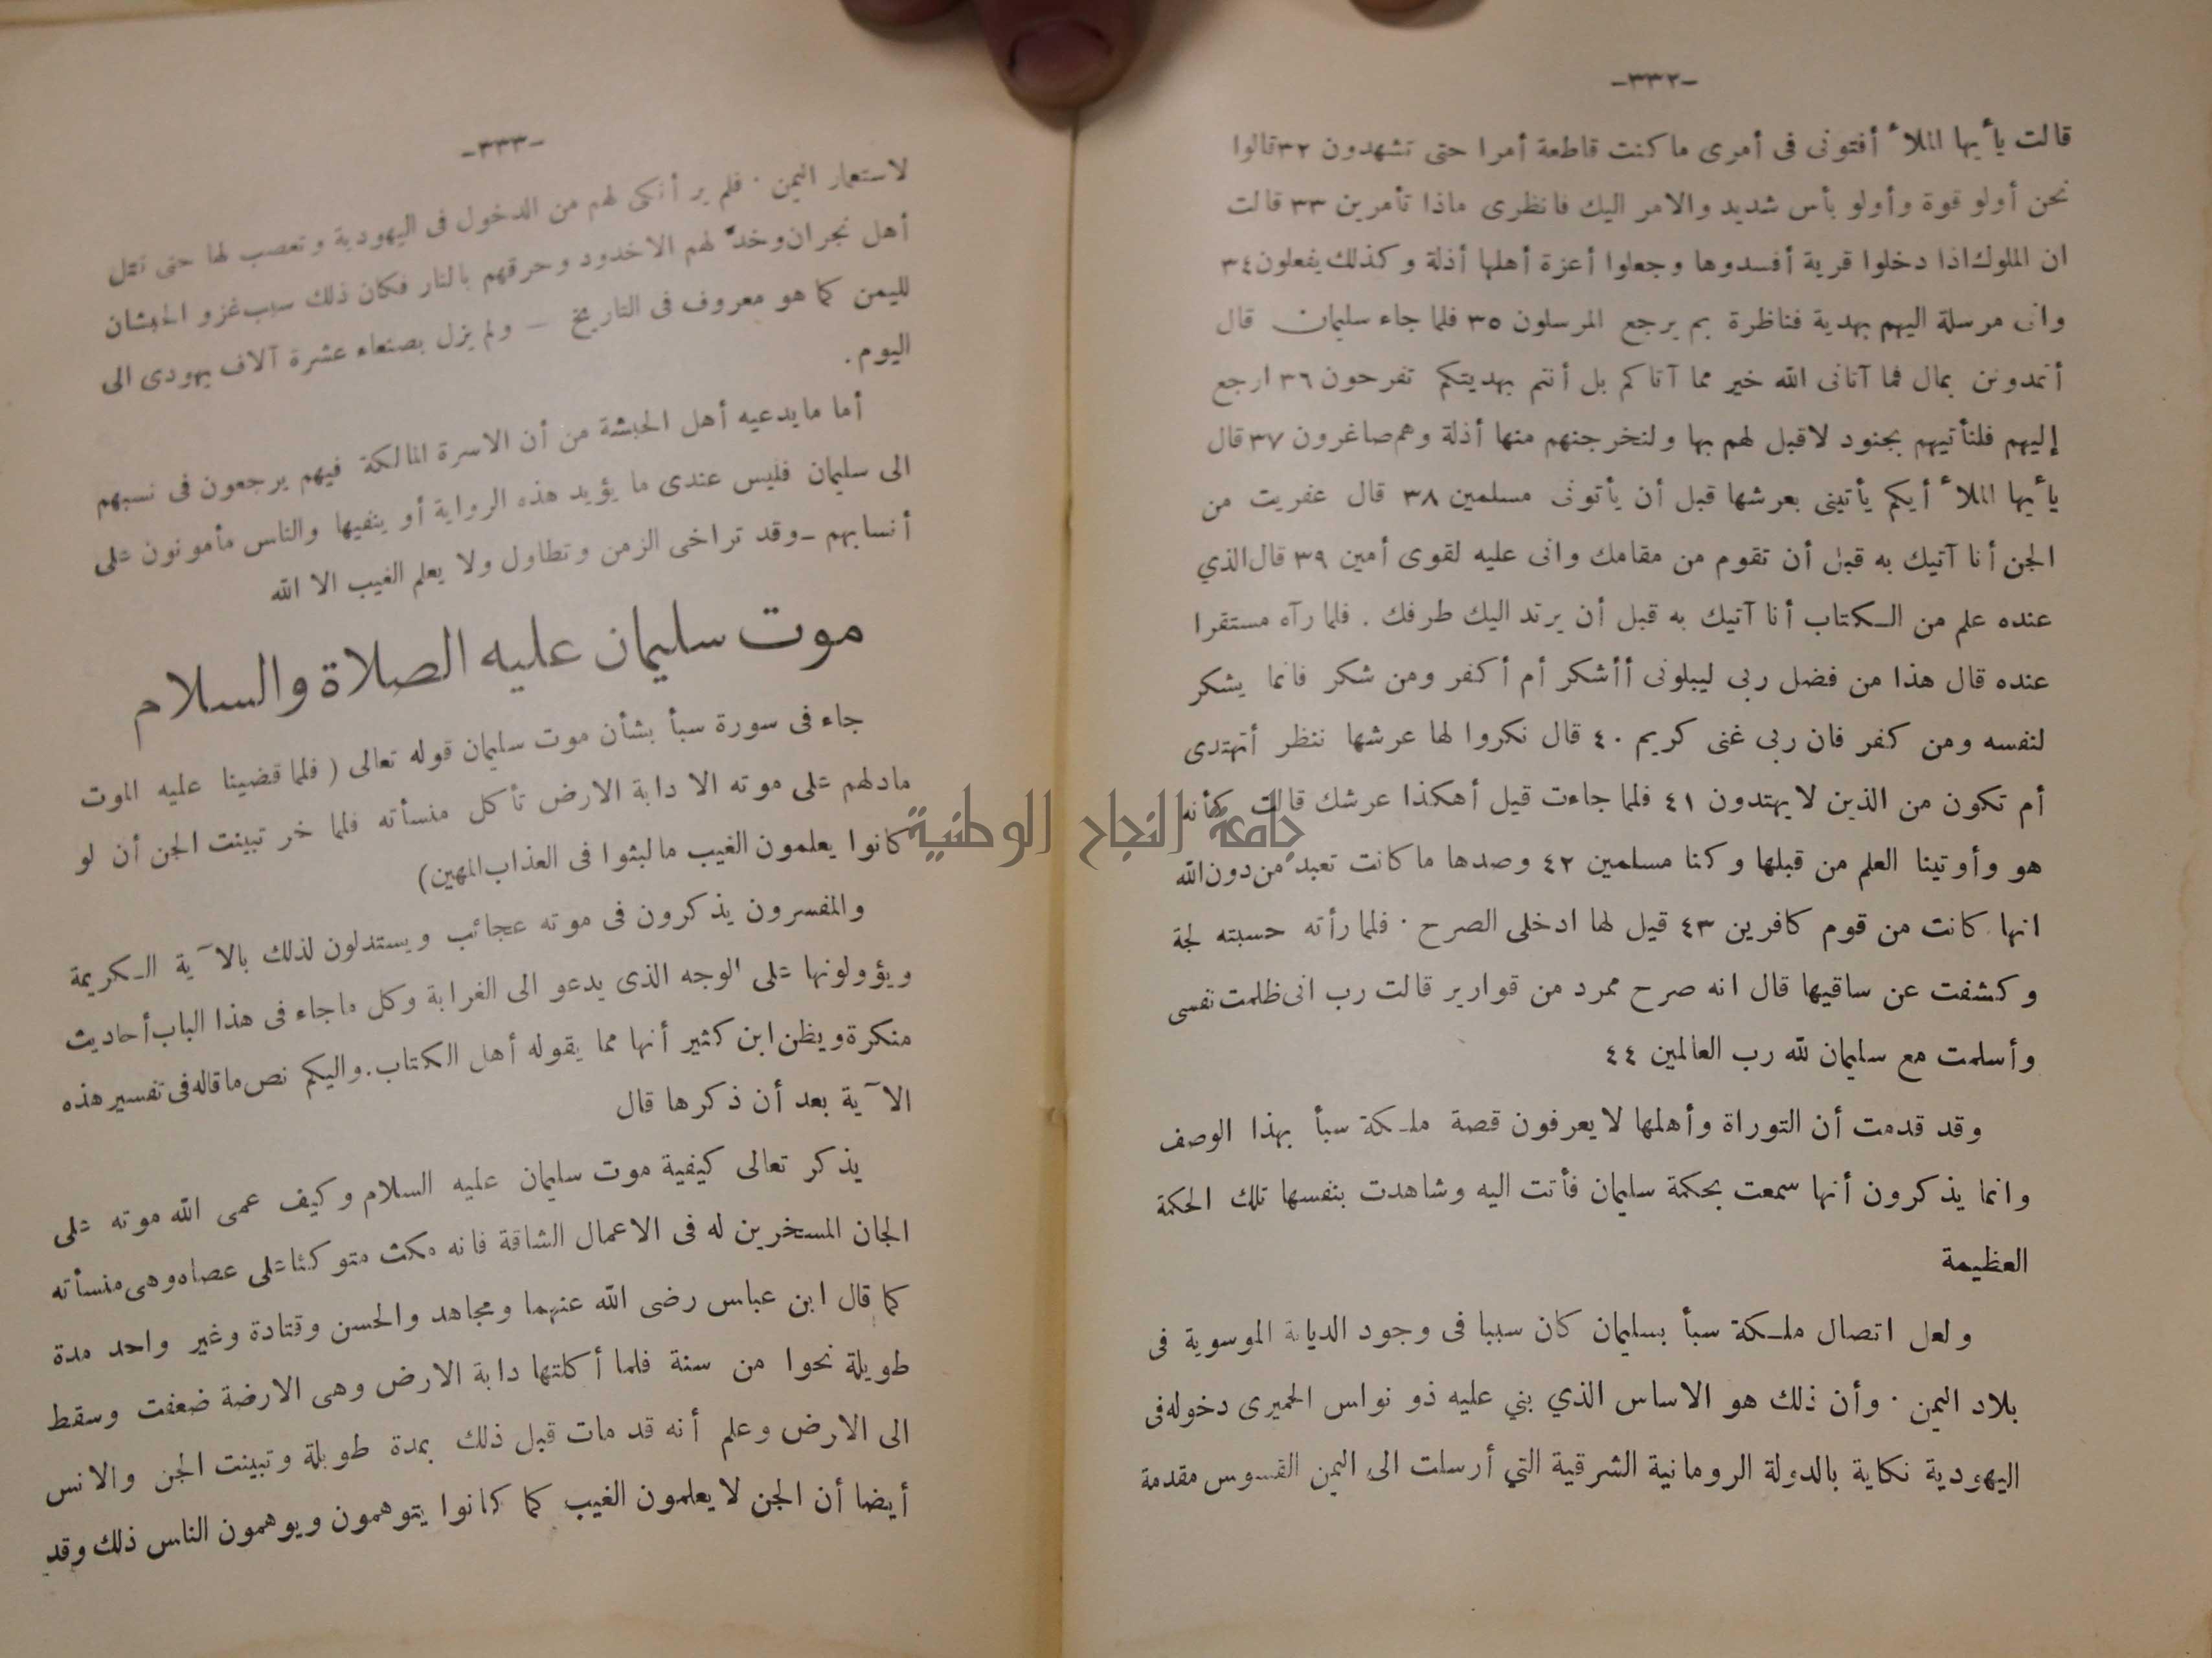 -٣٣٢-
قالت يأيها الملأ أفتونى فى أمرى ما كنت قاطعة أمرا حتى تشهدون ٣٢ قالوا
نحن أولو قوة وأولو بأس شديد والامر اليك فانظرى ماذا تأمرين ٣٣ قالت
ان الملوك اذا دخلوا قرية أفسدوها وجعلوا أعزة أهلها أذلة وكذلك يفعلون ٣٤
وانى مرسلة اليهم بهدية فناظرة بم يرجع المرسلون ٣٥ فلما جاء سليمان قال
أتمدونن بمال فما آتانى الله خير مما آتاكم بل أنتم بهديتكم تفرحون ٣٦ ارجع
إليهم فلنأتيهم بجنود لا قبل لهم بها ولنخرجنهم منها أذلة وهم صاغرون ٣٧ قال
يأيها الملأ أيكم يأتينى بعرشها قبل أن يأتونى مسلمين ٣٨ قال عفريت من
الجن أنا آتيك به قبل أن تقوم من مقامك وانى عليه لقوى أمين ٣٩ قال الذي
عنده علم من الـكتاب أنا آتيك به قبل أن يرتد اليك طرفك . فلما رآه مستقرا
عنده قال هذا من فضل ربى ليبلونى أأشكر أم أكفر ومن شكر فانما يشكر
لنفسه ومن كفر فان ربى غنى كريم ٤٠ قال نكروا لها عرشها ننظر أتهتدى
أم تكون من الذين لا يهتدون ٤١ فلما جاءت قيل أهكذا عرشك قالت كأنه
هو وأوتينا العلم من قبلها وكنا مسلمين ٤٢ وصدها ما كانت تعبد من دون الله
انها كانت من قوم كافرين ٤٣ قيل لها ادخلى الصرح . فلما رأته حسبته لجة
وكشفت عن ساقيها قال انه صرح ممرد من قوارير قالت رب انى ظلمت نفسى
وأسلمت مع سليمان لله رب العالمين ٤٤
وقد قدمت أن التوراة وأهلها لا يعرفون قصة ملـكة سبأ بهذا الوصف
وانما يذكرون أنها سمعت بحكمة سليمان فأتت اليه وشاهدت بنفسها تلك الحكمة
العظيمة
ولعل اتصال ملـكة سبأ بسليمان كان سببا فى وجود الديانة الموسوية فى
بلاد اليمن . وأن ذلك هو الاساس الذي بني عليه ذو نواس الحميرى دخوله فى
اليهودية نكاية بالدولة الرومانية الشرقية التي أرسلت الى اليمن القسوس مقدمة
-٣٣٣-
لاستعمار اليمن . فلم ير أنكى لهم من الدخول فى اليهودية وتعصب لها حتى قتل
أهل نجران وخدّ لهم الاخدود وحرقهم بالنار فكان ذلك سبب غزو الحبشان
لليمن كما هو معروف فى التاريخ — ولم يزل بصنعاء عشرة آلاف يهودى الى
اليوم .
أما ما يدعيه أهل الحبشة من أن الاسرة المالكة فيهم يرجعون فى نسبهم
الى سليمان فليس عندى ما يؤيد هذه الرواية أو ينفيها والناس مأمونون على
أنسابهم – وقد تراخى الزمن وتطاول ولا يعلم الغيب الا الله
موت سليمان عليه الصلاة والسلام
جاء فى سورة سبأ بشأن موت سليمان قوله تعالى ( فلما قضينا عليه الموت
مادلهم على موته الا دابة الارض تأكل منسأته فلما خر تبينت الجن أن لو
كانوا يعلمون الغيب ما لبثوا فى العذاب المهين)
والمفسرون يذكرون فى موته عجائب ويستدلون لذلك بالآية الـكريمة
ويؤولونها على الوجه الذى يدعو الى الغرابة وكل ماجاء فى هذا الباب أحاديث
منكرة ويظن ابن كثير أنها مما يقوله أهل الكتاب . واليكم نص ماقاله فى تفسير هذه
الآية بعد أن ذكرها قال
يذكر تعالى كيفية موت سليمان عليه السلام وكيف عمى الله موته على
الجان المسخرين له فى الاعمال الشاقة فانه مكث متوكئا على عصاه وهى منسأته
كما قال ابن عباس رضى الله عنهما ومجاهد والحسن وقتادة وغير واحد مدة
طويلة نحوا من سنة فلما أكلتها دابة الارض وهى الارضة ضعفت وسقط
الى الارض وعلم أنه قد مات قبل ذلك بمدة طويلة وتبينت الجن والانس
أيضا أن الجن لا يعلمون الغيب كما كانوا يتوهمون ويوهمون الناس ذلك وقد
جامعة النجاح الوطنية